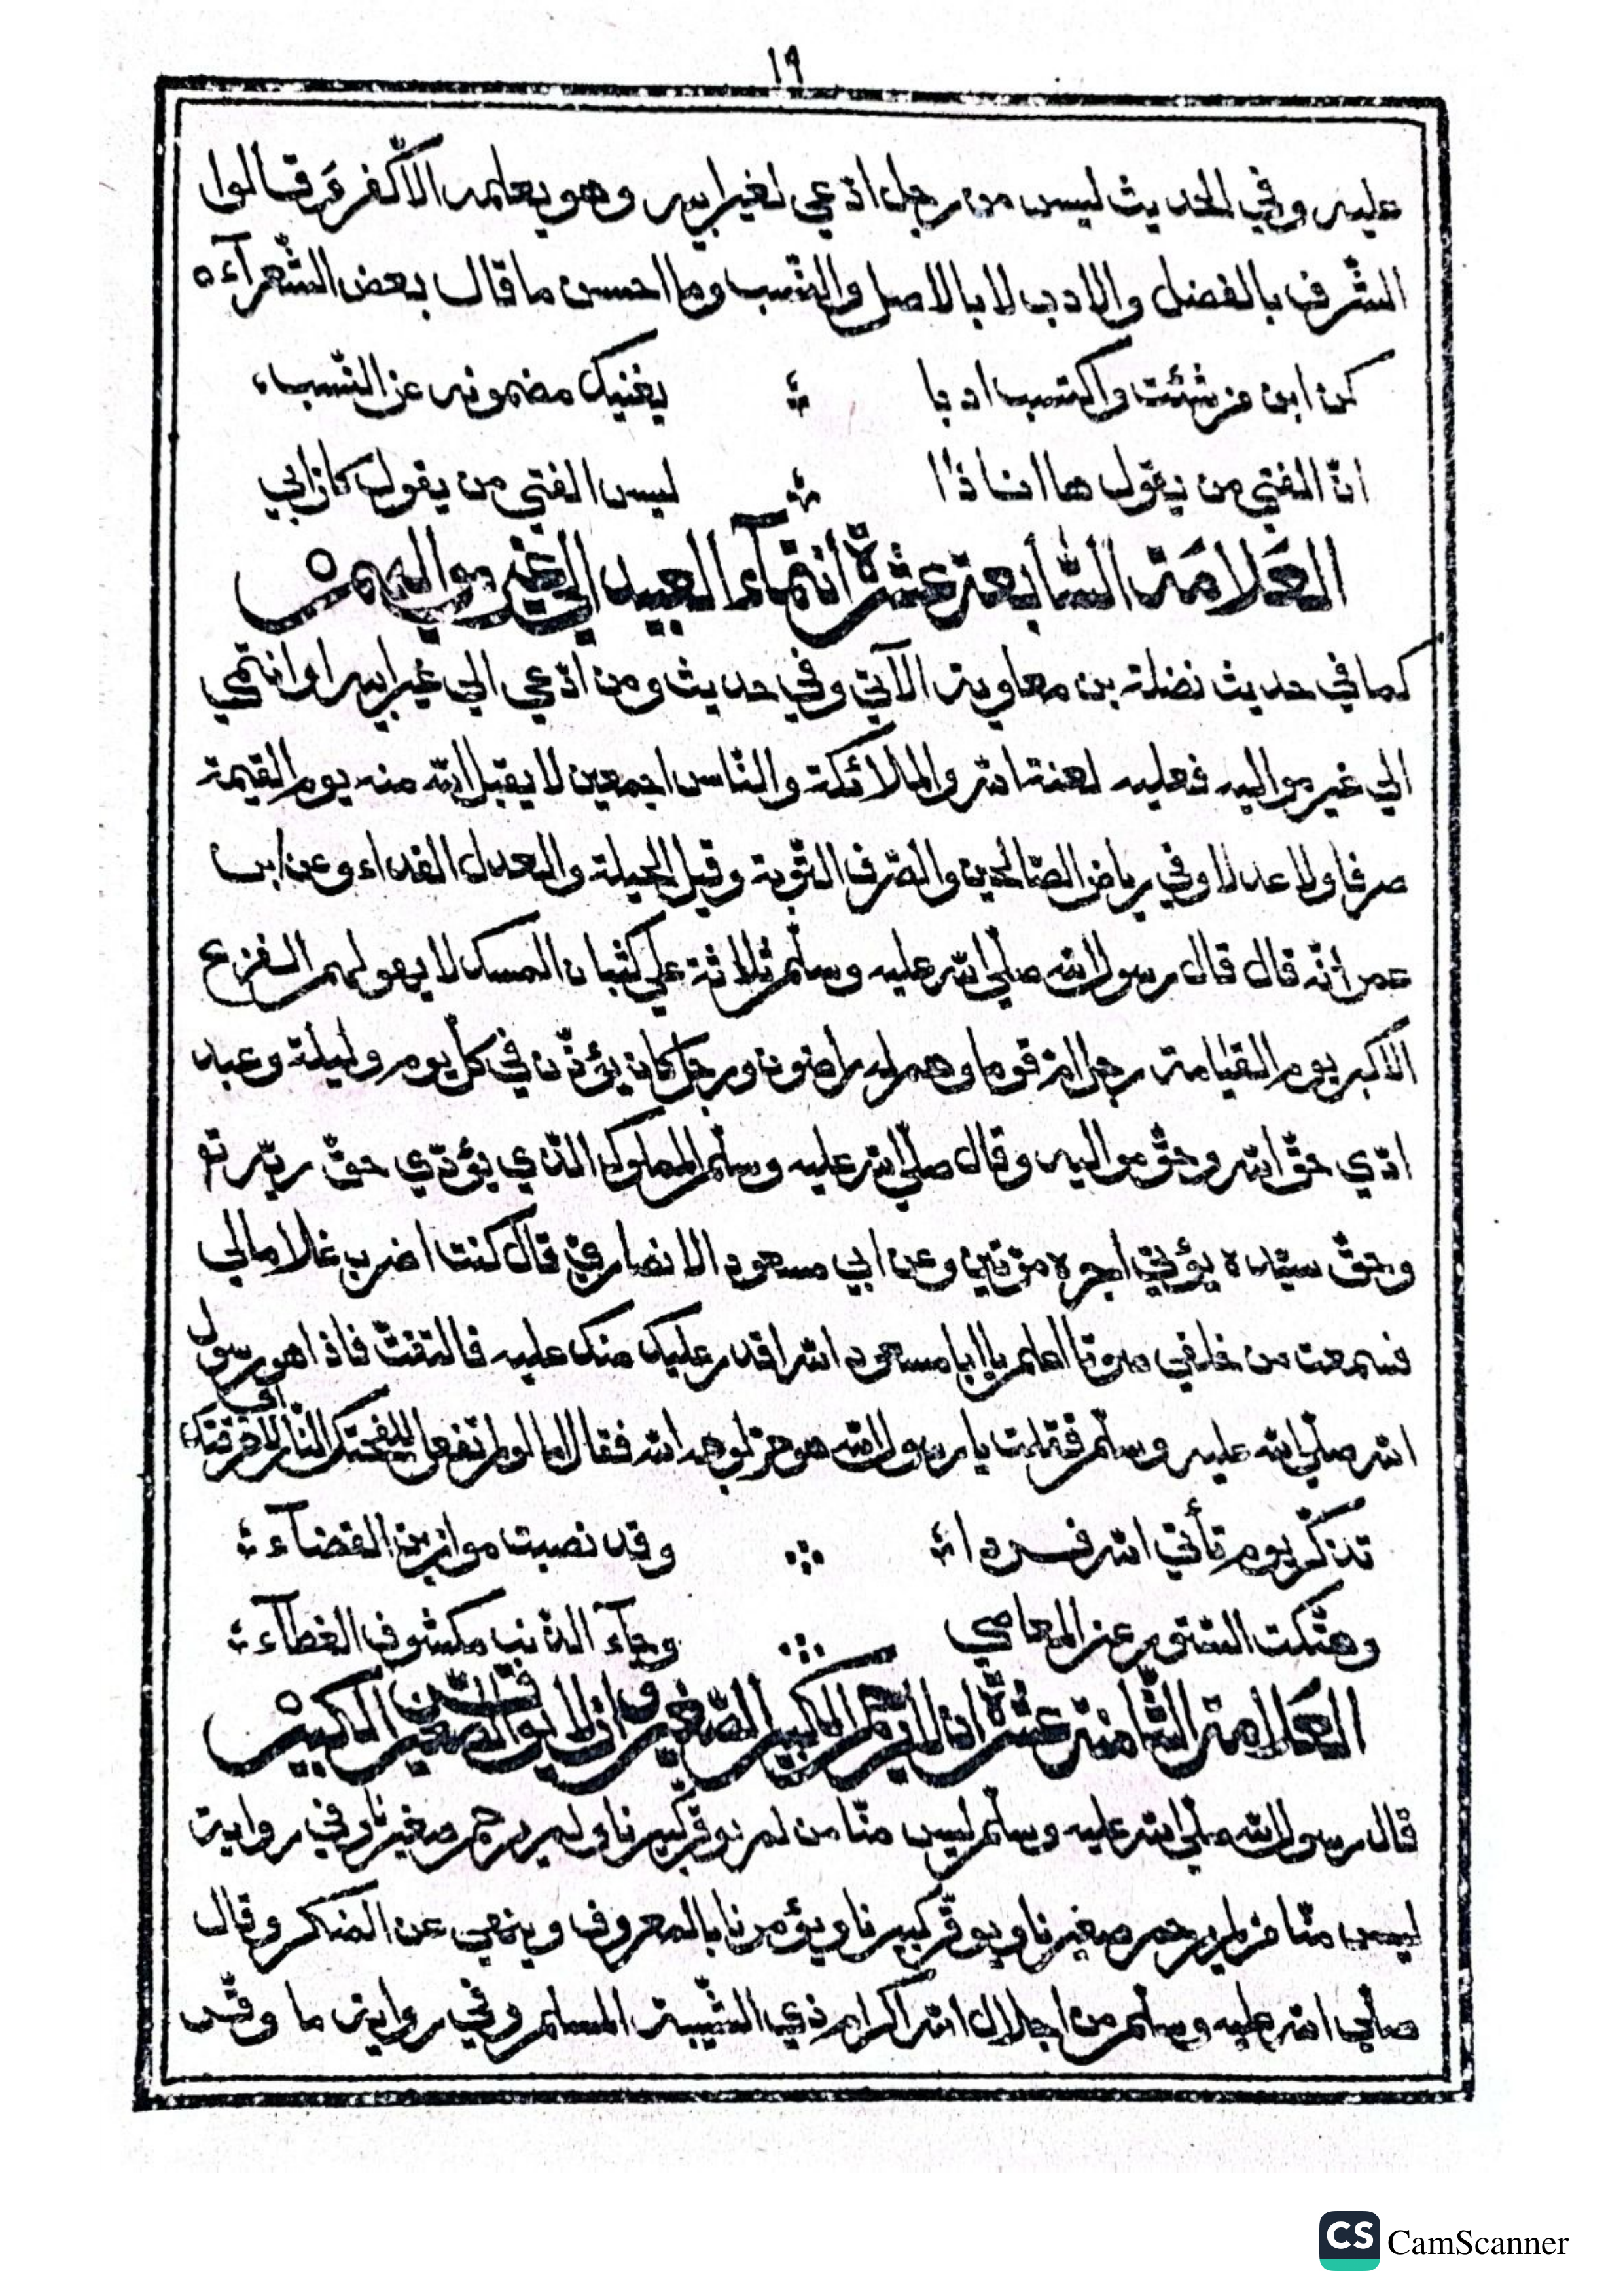 ١٩
عليه وفي الحديث ليس من رجل ادّعي لغير ابيه وهو يعلمه الاّ كفر وقالوا
الشّرف بالفضل والادب لا بالاصل والنّسب وما احسن ما قال بعض الشّعرآء ه
كن ابن من شئت واكتسب ادبا ؞ يغنيك مضمونه عن النّسب
انّ الفتي من يقول ها انا ذا ؞ ليس الفتي من يقول كان ابي
العَلامَة السّابعة عشرة انتمآء العبيد الي غير مواليهم ه
كما في حديث نضلة بن معاوية الآتي وفي حديث ومن ادّعي الي غير ابيه او انتمي
الي غير مواليه فعليه لعنة الله والملائكة والنّاس اجمعين لا يقبل الله منه يوم القيمة
صرفا ولا عدلا وفي رياض الصّالحين والصّرف التّوبة وقيل الحيلة والعدل الفداء وعن ابن
عمر انّه قال قال رسول الله صلّي الله عليه وسلّم ثلاثة علي كثبان المسك لا يهولهم الفزع
الاكبر يوم القيامة رجل امّ قوما وهم له راضون ورجل كان يؤذّن في كلّ يوم وليلة وعبد
ادّي حقّ الله وحقّ مواليه وقال صلّي الله عليه وسلّم المملوك الّذي يؤدّي حقّ ربّه تع
وحقّ سيّده يؤتي اجره مرّتين وعن ابي مسعود الانصاري قال كنت اضرب غلاما لي
فسمعت من خلفي صوتا اعلم يا ابا مسعود الله اقدر عليك منك عليه فالتفتّ فاذا هو رسول
الله صلّي الله عليه وسلّم فقلت يا رسول الله هو حرّ لوجه الله فقال اما لو لم تفعل للفحتك النّار او لحرقتك
تذكّر يوم تأتي الله فردا ؞ وقد نصبت موازين القضآء
وهتّكت السّتور عن المعاصي ؞ وجآء الذّنب مكشوف الغطآء
العَلامة الثّامنة عشرة ان لا يرحم الكبير الصّغير وان لا يوقّر الصّغير الكبير ه
قال رسول الله صلّي الله عليه وسلّم ليس منّا من لم يوقّر كبيرنا ولم يرحم صغيرنا وفي رواية
ليس منّا من لم يرحم صغيرنا ويوقّر كبيرنا ويؤمرنا بالمعروف وينهي عن المنكر وقال
صلّي الله عليه وسلّم من اجلال الله اكرام ذي الشّيبة المسلم وفي رواية ما وقّر
CS CamScanner